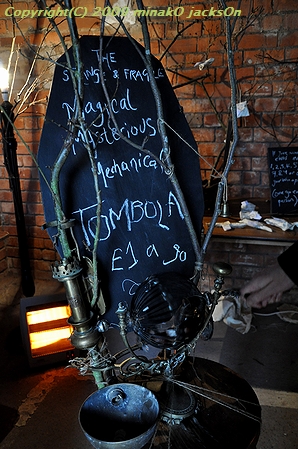 Copyright(C) 2009 minakO jacksOn
THE
STRANGE & FRAGILE
Magical
Mysterious
Mechanical
TOMBOLA
£1 a go